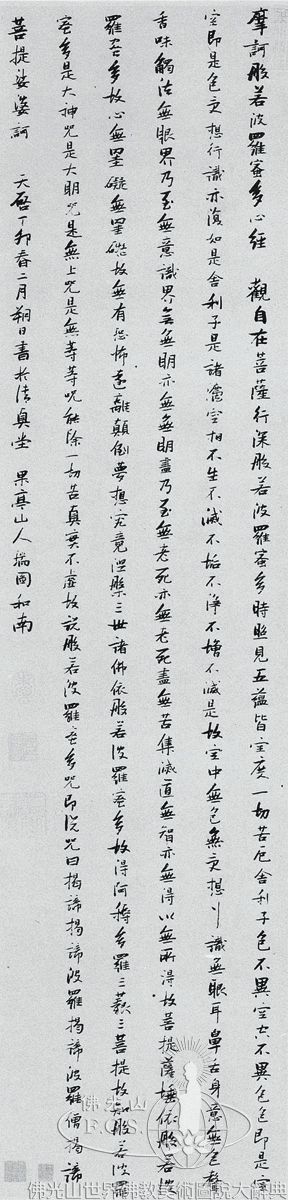 摩訶般若波羅蜜多心經　觀自在菩薩行深般若波羅蜜多時照見五蘊皆空度一切苦厄舍利子色不異空空不異色色即是空
空即是色受想行識亦復如是舍利子是諸法空相不生不滅不垢不淨不增不減是故空中無色無受想行識無眼耳鼻舌身意無色聲
香味觸法無眼界乃至無意識界無無明亦無無明盡乃至無老死亦無老死盡無苦集滅道無智亦無得以無所得故菩提薩埵依般若波
羅蜜多故心無罣礙無罣礙故無有恐怖遠離顛倒夢想究竟涅槃三世諸佛依般若波羅蜜多故得阿耨多羅三藐三菩提故知般若波羅
蜜多是大神咒是大明咒是無上咒是無等等咒能除一切苦真實不虛故說般若波羅蜜多咒即說咒曰揭諦揭諦波羅揭諦波羅僧揭諦
菩提娑婆訶　天啓丁卯春二月朔日書於法奧堂　果亭山人瑞圖和南
佛光山
F.G.S.
佛光山世界佛教美術圖說大辭典